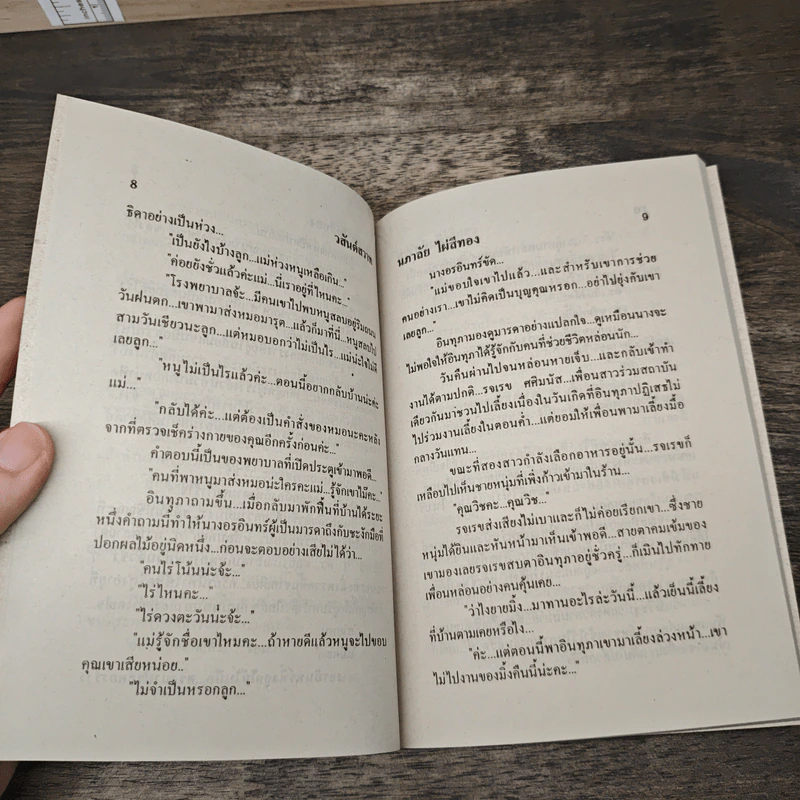 8
วสันต์สวาท
ธิดาอย่างเป็นห่วง...
"เป็นยังไงบ้างลูก...แม่ห่วงหนูเหลือเกิน..."
"ค่อยยังชั่วแล้วค่ะแม่...นี่เราอยู่ที่ไหนคะ..."
"โรงพยาบาลจ้ะ...มีคนเขาไปพบหนูสลบอยู่ริมถนน
วันฝนตก...เขาพามาส่งหมอมารุต...แล้วก็มาที่นี่...หนูสลบไป
สามวันเชียวนะลูก...แต่หมอบอกว่าไม่เป็นไร...แม่น่ะใจไม่ดี
เลยลูก..."
"หนูไม่เป็นไรแล้วค่ะ...ตอนนี้อยากกลับบ้านน่ะค่ะ
แม่..."
"กลับได้ค่ะ...แต่ต้องเป็นคำสั่งของหมอนะคะหลัง
จากที่ตรวจเช็คร่างกายของคุณอีกครั้งก่อนค่ะ..."
คำตอบนี้เป็นของพยาบาลที่เปิดประตูเข้ามาพอดี...
"คนที่พาหนูมาส่งหมอน่ะใครคะแม่...รู้จักเขาไม๊คะ..."
อินทุภาถามขึ้น...เมื่อกลับมาพักฟื้นที่บ้านได้ระยะ
หนึ่งคำถามนี้ทำให้นางอรอินทร์ผู้เป็นมารดาถึงกับชะงักมือที่
ปอกผลไม้อยู่นิดหนึ่ง...ก่อนจะตอบอย่างเสียไม่ได้ว่า...
"คนไร่โน้นน่ะจ้ะ..."
"ไร่ไหนคะ..."
"ไร่ดวงตะวันน่ะจ้ะ..."
"แม่รู้จักชื่อเขาไหมคะ...ถ้าหายดีแล้วหนูจะไปขอบ
คุณเขาเสียหน่อย.."
"ไม่จำเป็นหรอกลูก..."
นภาลัย ไผ่สีทอง
9
นางอรอินทร์ขัด...
"แม่ขอบใจเขาไปแล้ว...และสำหรับเขาการช่วย
คนอย่างเรา...เขาไม่คิดเป็นบุญคุณหรอก...อย่าไปยุ่งกับเขา
เลยลูก..."
อินทุภามองดูมารดาอย่างแปลกใจ...ดูเหมือนนางจะ
ไม่พอใจให้อินทุภาได้รู้จักกับคนที่ช่วยชีวิตหล่อนนัก...
วันคืนผ่านไปจนหล่อนหายเจ็บ...และกลับเข้าทำ
งานได้ตามปกติ...รจเรข ศศิมนัส...เพื่อนสาวร่วมสถาบัน
เดียวกันมาชวนไปเลี้ยงเนื่องในวันเกิดที่อินทุภาปฏิเสธไม่
ไปร่วมงานเลี้ยงในตอนค่ำ...แต่ยอมให้เพื่อนพามาเลี้ยงมื้อ
กลางวันแทน...
ขณะที่สองสาวกำลังเลือกอาหารอยู่นั้น...รจเรขก็
เหลือบไปเห็นชายหนุ่มที่เพิ่งก้าวเข้ามาในร้าน...
"คุณวิชคะ...คุณวิช..."
รจเรขส่งเสียงไม่เบาและก็ไม่ค่อยเรียกเขา...ซึ่งชาย
หนุ่มได้ยินและหันหน้ามาเห็นเข้าพอดี...สายตาคมเข้มของ
เขามองเลยรจเรขสบตาอินทุภาอยู่ชั่วครู่...ก็เมินไปทักทาย
เพื่อนหล่อนอย่างคนคุ้นเคย...
"ว่าไงยายมิ้ง...มาทานอะไรล่ะวันนี้...แล้วเย็นนี้เลี้ยง
ที่บ้านตามเคยหรือไง..."
"ค่ะ...แต่ตอนนี้พาอินทุภาเขามาเลี้ยงล่วงหน้า...เขา
ไม่ไปงานของมิ้งคืนนี้น่ะคะ..."